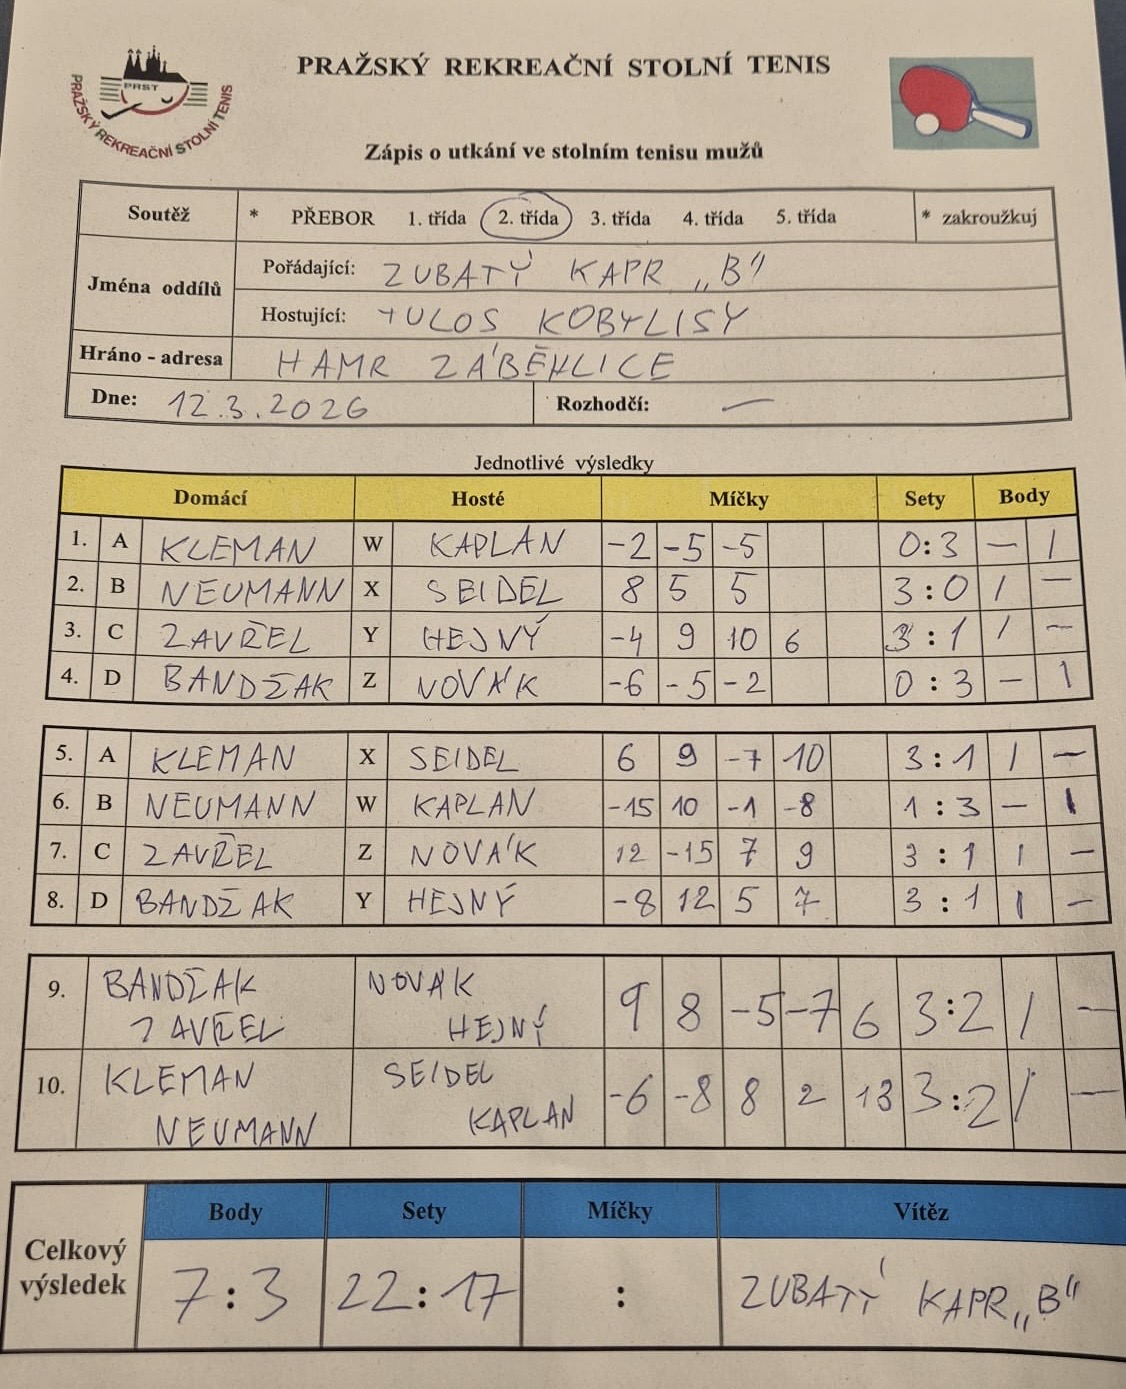 PRAŽSKÝ REKREAČNÍ STOLNÍ TENIS
PRST
PRAŽSKÝ REKREAČNÍ STOLNÍ TENIS
Zápis o utkání ve stolním tenisu mužů
Soutěž * PŘEBOR 1. třída 2. třída 3. třída 4. třída 5. třída * zakroužkuj
Jména oddílů
Pořádající: ZUBATÝ KAPR „B"
Hostující: TULOS KOBYLISY
Hráno - adresa HAMR ZÁBĚHLICE
Dne: 12.3.2026 Rozhodčí: —
Jednotlivé výsledky
Domácí Hosté Míčky Sety Body
1. A KLEMAN W KAPLAN -2 -5 -5 0:3 — 1
2. B NEUMANN X SEIDEL 8 5 5 3:0 1 —
3. C ZAVŘEL Y HEJNÝ -4 9 10 6 3:1 1 —
4. D BANDŽAK Z NOVÁK -6 -5 -2 0:3 — 1
5. A KLEMAN X SEIDEL 6 9 -7 10 3:1 1 —
6. B NEUMANN W KAPLAN -15 10 -1 -8 1:3 — 1
7. C ZAVŘEL Z NOVÁK 12 -15 7 9 3:1 1 —
8. D BANDŽAK Y HEJNÝ -8 12 5 7 3:1 1 —
9. BANDŽAK NOVÁK 9 8 -5 -7 6 3:2 1 —
ZAVŘEL HEJNÝ
10. KLEMAN SEIDEL -6 -8 8 2 13 3:2 1 —
NEUMANN KAPLAN
Body Sety Míčky Vítěz
Celkový výsledek 7:3 22:17 : ZUBATÝ KAPR „B"